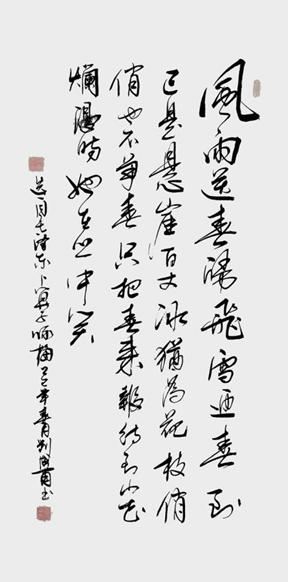 風雨送春歸飛雪迎春到
已是懸崖百丈冰猶為花枝俏
俏也不争春只把春来報待到山花
爛漫時她在丛中笑
选自毛泽东卜算子咏梅 年春月刘书